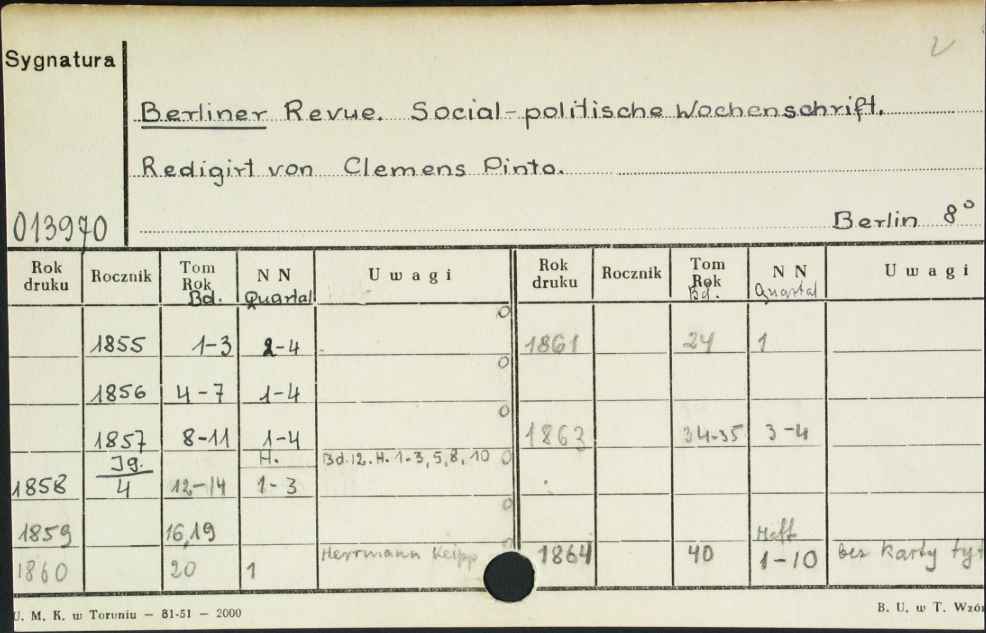 2
Sygnatura
Berliner Revue. Social-politische Wochenschrift.
Redigirt von Clemens Pinto.
013970 Berlin 8°
Rok druku Rocznik Tom Rok Bd. N N Quartal Uwagi Rok druku Rocznik Tom Rok Bd. N N Quartal Uwagi
1855 1-3 2-4 1861 24 1
1856 4-7 1-4
1857 8-11 1-4 1863 34-35 3-4
Jg. H. Bd. 12. H. 1-3, 5, 8, 10
1858 4 12-14 1-3
1859 16,19 Heft
Herrmann 1864 40 1-10 bez karty tyt
1860 20 1
U. M. K. w Toruniu — 81-51 — 2000 B. U. w T. Wzór